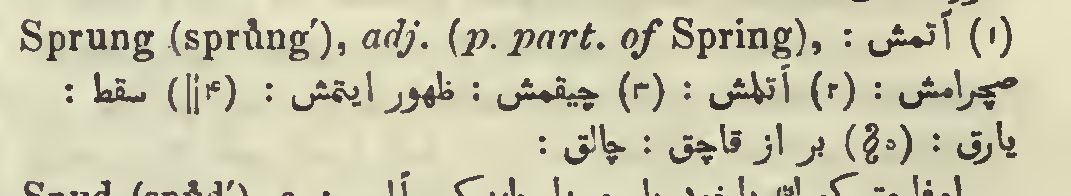 Sprung (sprŭng′), adj. (p. part. of Spring), : (۱) آتمش
صچرامش : (۲) آتلمش : (۳) چیقمش : ظهور ایتمش : (۴||) سقط :
یارق : (۵) بر از قاچق : چالق :